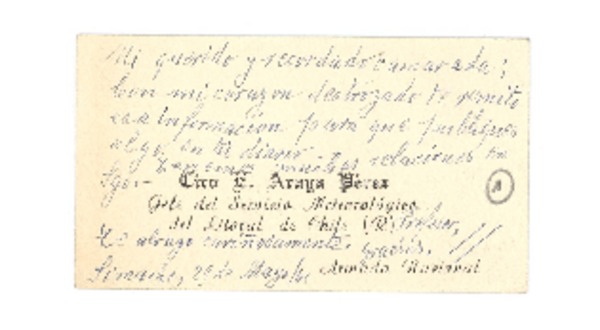 Mi querido y recordado camarada:
Con mi corazon destrozado te remito
esa Información para que publiques
algo en tu diario.
relaciones en
Stgo.-
Ciro E. Araya Pérez
Jefe del Servicio Meteorológico
del Litoral de Chile (R) Profesor,
Te abraza cariñosamente. gracias.
Limache, 29 de Mayo
Armada Nacional